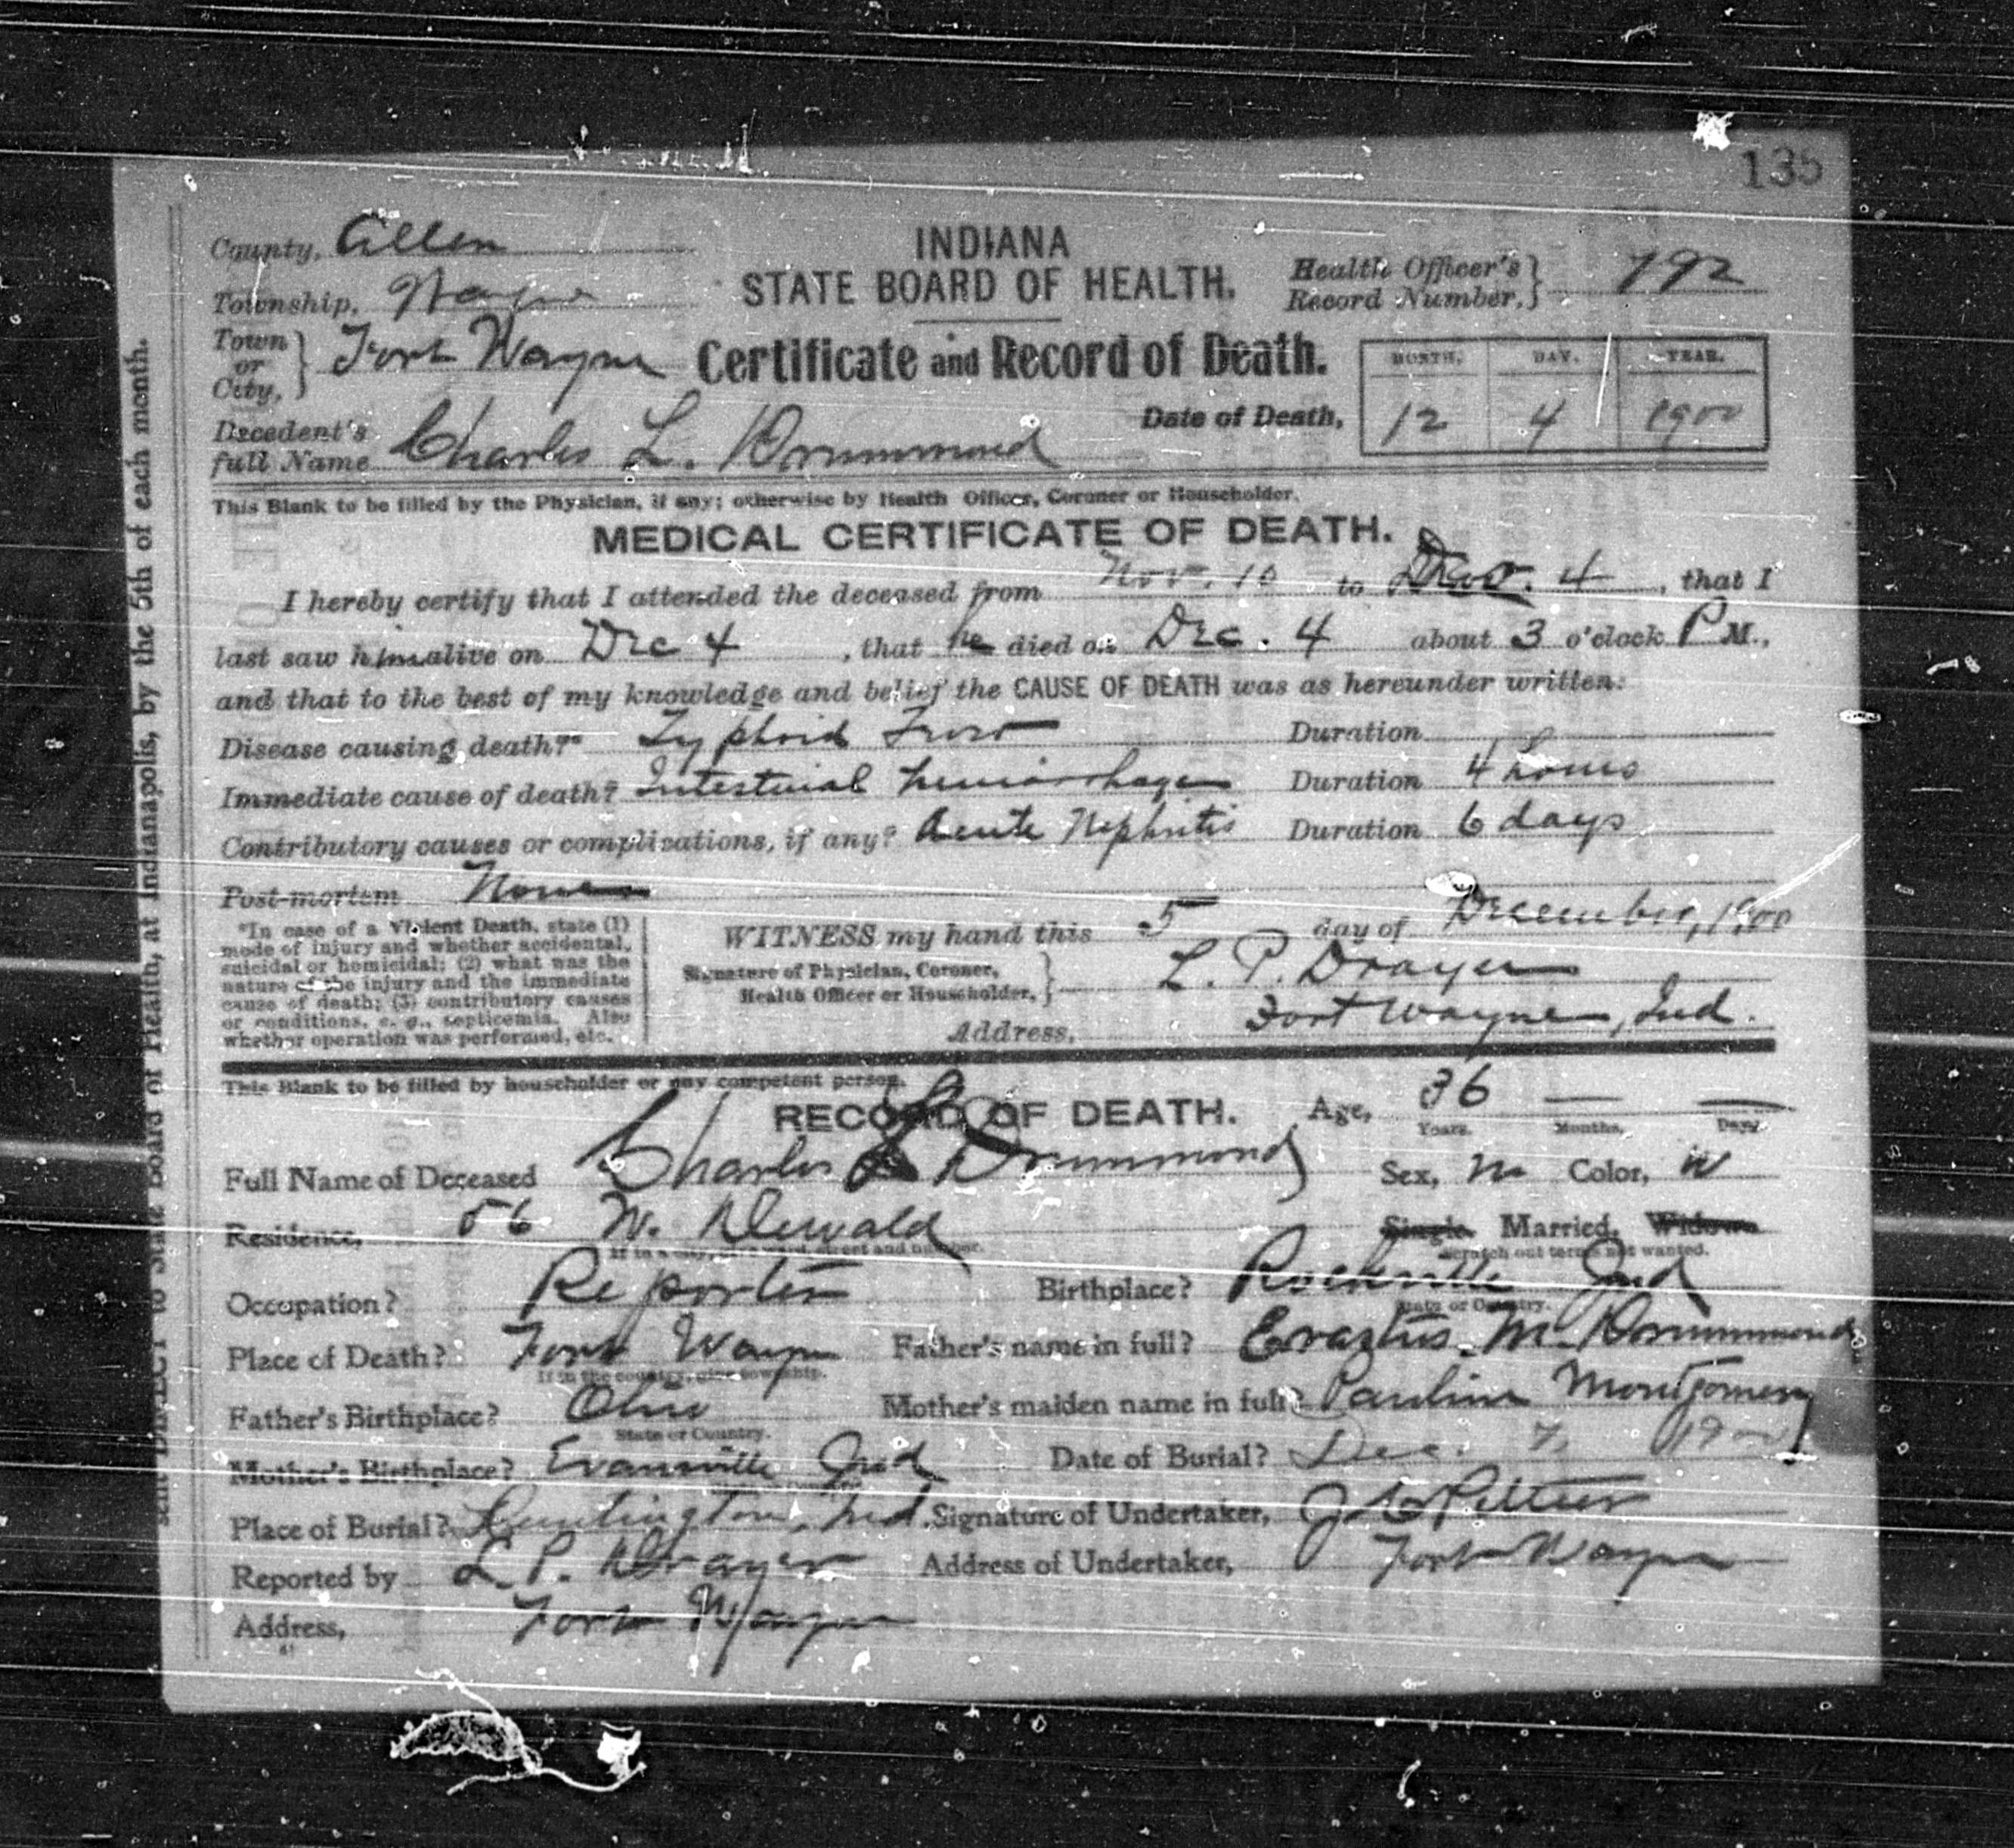 135
County, Allen
INDIANA
STATE BOARD OF HEALTH.
Health Officer's
Record Number, 792
Township, Wayne
Town
or
City, Fort Wayne
Certificate and Record of Death.
MONTH. DAY. YEAR.
Date of Death, 12 4 1900
Decedent's
full Name Charles L. Drummond
This Blank to be filled by the Physician, if any; otherwise by Health Officer, Coroner or Householder.
MEDICAL CERTIFICATE OF DEATH.
I hereby certify that I attended the deceased from Nov. 10 to Dec. 4, that I
last saw him alive on Dec 4, that he died on Dec. 4 about 3 o'clock P M.,
and that to the best of my knowledge and belief the CAUSE OF DEATH was as hereunder written:
Disease causing death?* Typhoid Fever Duration
Immediate cause of death? Intestinal hemorrhage Duration 4 hours
Contributory causes or complications, if any? Acute Nephritis Duration 6 days
Post-mortem None
*In case of a Violent Death, state (1)
mode of injury and whether accidental,
suicidal or homicidal; (2) what was the
nature of the injury and the immediate
cause of death; (3) contributory causes
or conditions, e. g., septicemia. Also
whether operation was performed, etc.
WITNESS my hand this 5 day of December, 1900
Signature of Physician, Coroner,
Health Officer or Householder, L. P. Drayer
Address, Fort Wayne, Ind.
This Blank to be filled by householder or any competent person.
RECORD OF DEATH.
Age, 36 — —
Years. Months. Days.
Full Name of Deceased Charles L Drummond Sex, M Color, W
Residence, 56 W. Dewald Single. Married, Widow
If in a city, give ward, street and number. Scratch out terms not wanted.
Occupation? Reporter Birthplace? Rockville Ind
State or Country.
Place of Death? Fort Wayne Father's name in full? Erastus. M. Drummond
If in the country, give township.
Father's Birthplace? Ohio Mother's maiden name in full? Pauline Montgomery
State or Country.
Mother's Birthplace? Evansville Ind Date of Burial? Dec. 7, 1900
Place of Burial? Huntington, Ind. Signature of Undertaker, J C Peltier
Reported by L. P. Drayer Address of Undertaker, Fort Wayne
Address, Fort Wayne
sent DIRECT to State Board of Health, at Indianapolis, by the 5th of each month.